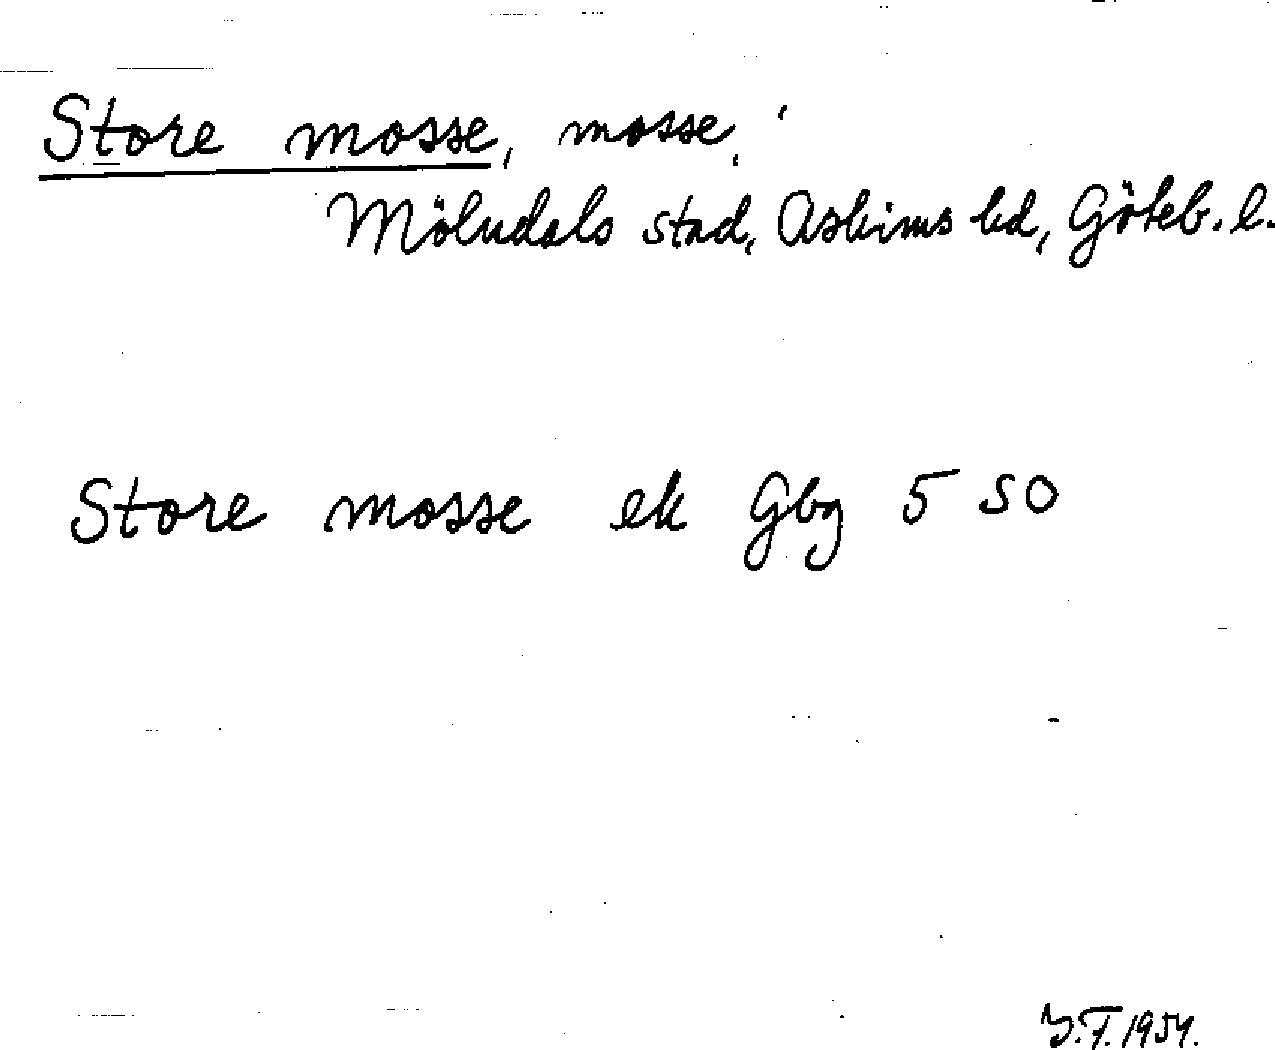 Store mosse, mosse,
Mölndals stad, Askims hd, Göteb. l.
Store mosse ek Gbg 5 SO
1954.